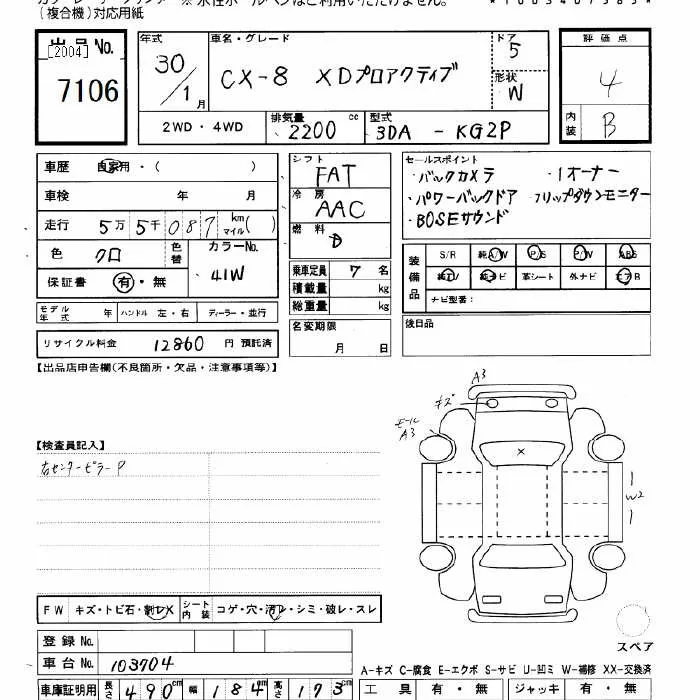 (複合機)対応用紙
出品No. [2004]
7106
年式 30/1月
車名・グレード CX-8 XDプロアクティブ
ドア 5
形状 W
評価点 4
内装 B
2WD・4WD
排気量 2200 cc
型式 3DA - KG2P
車歴 自家用・( )
車検 年 月
走行 5万5千087 km マイル( )
色 クロ 色替
カラーNo. 41W
保証書 有・無
モデル年式 年 ハンドル 左・右 ディーラー・並行
リサイクル料金 12860 円 預託済
シフト FAT
冷房 AAC
燃料 D
乗車定員 7 名
積載量 kg
総重量 kg
名変期限
月 日
セールスポイント
・バックカメラ ・1オーナー
・パワーバックドア ・フリップダウンモニター
・BOSEサウンド
装備品 S/R 純A/W P/S P/W ABS
純TV 純ナビ 革シート 外ナビ エアB
ナビ型番:
後日品
【出品店申告欄(不良箇所・欠品・注意事項等)】
【検査員記入】
右センターピラーP
A3
キズ
モール
A3
X
W2
スペア
FW キズ・トビ石・割レX シート内装 コゲ・穴・汚レ・シミ・破レ・スレ
登録No.
車台No. 103704
車庫証明用 長さ 490cm 幅 184cm 高さ 173cm
A-キズ C-腐食 E-エクボ S-サビ U-凹ミ W-補修 XX-交換済
工具 有・無 ジャッキ 有・無